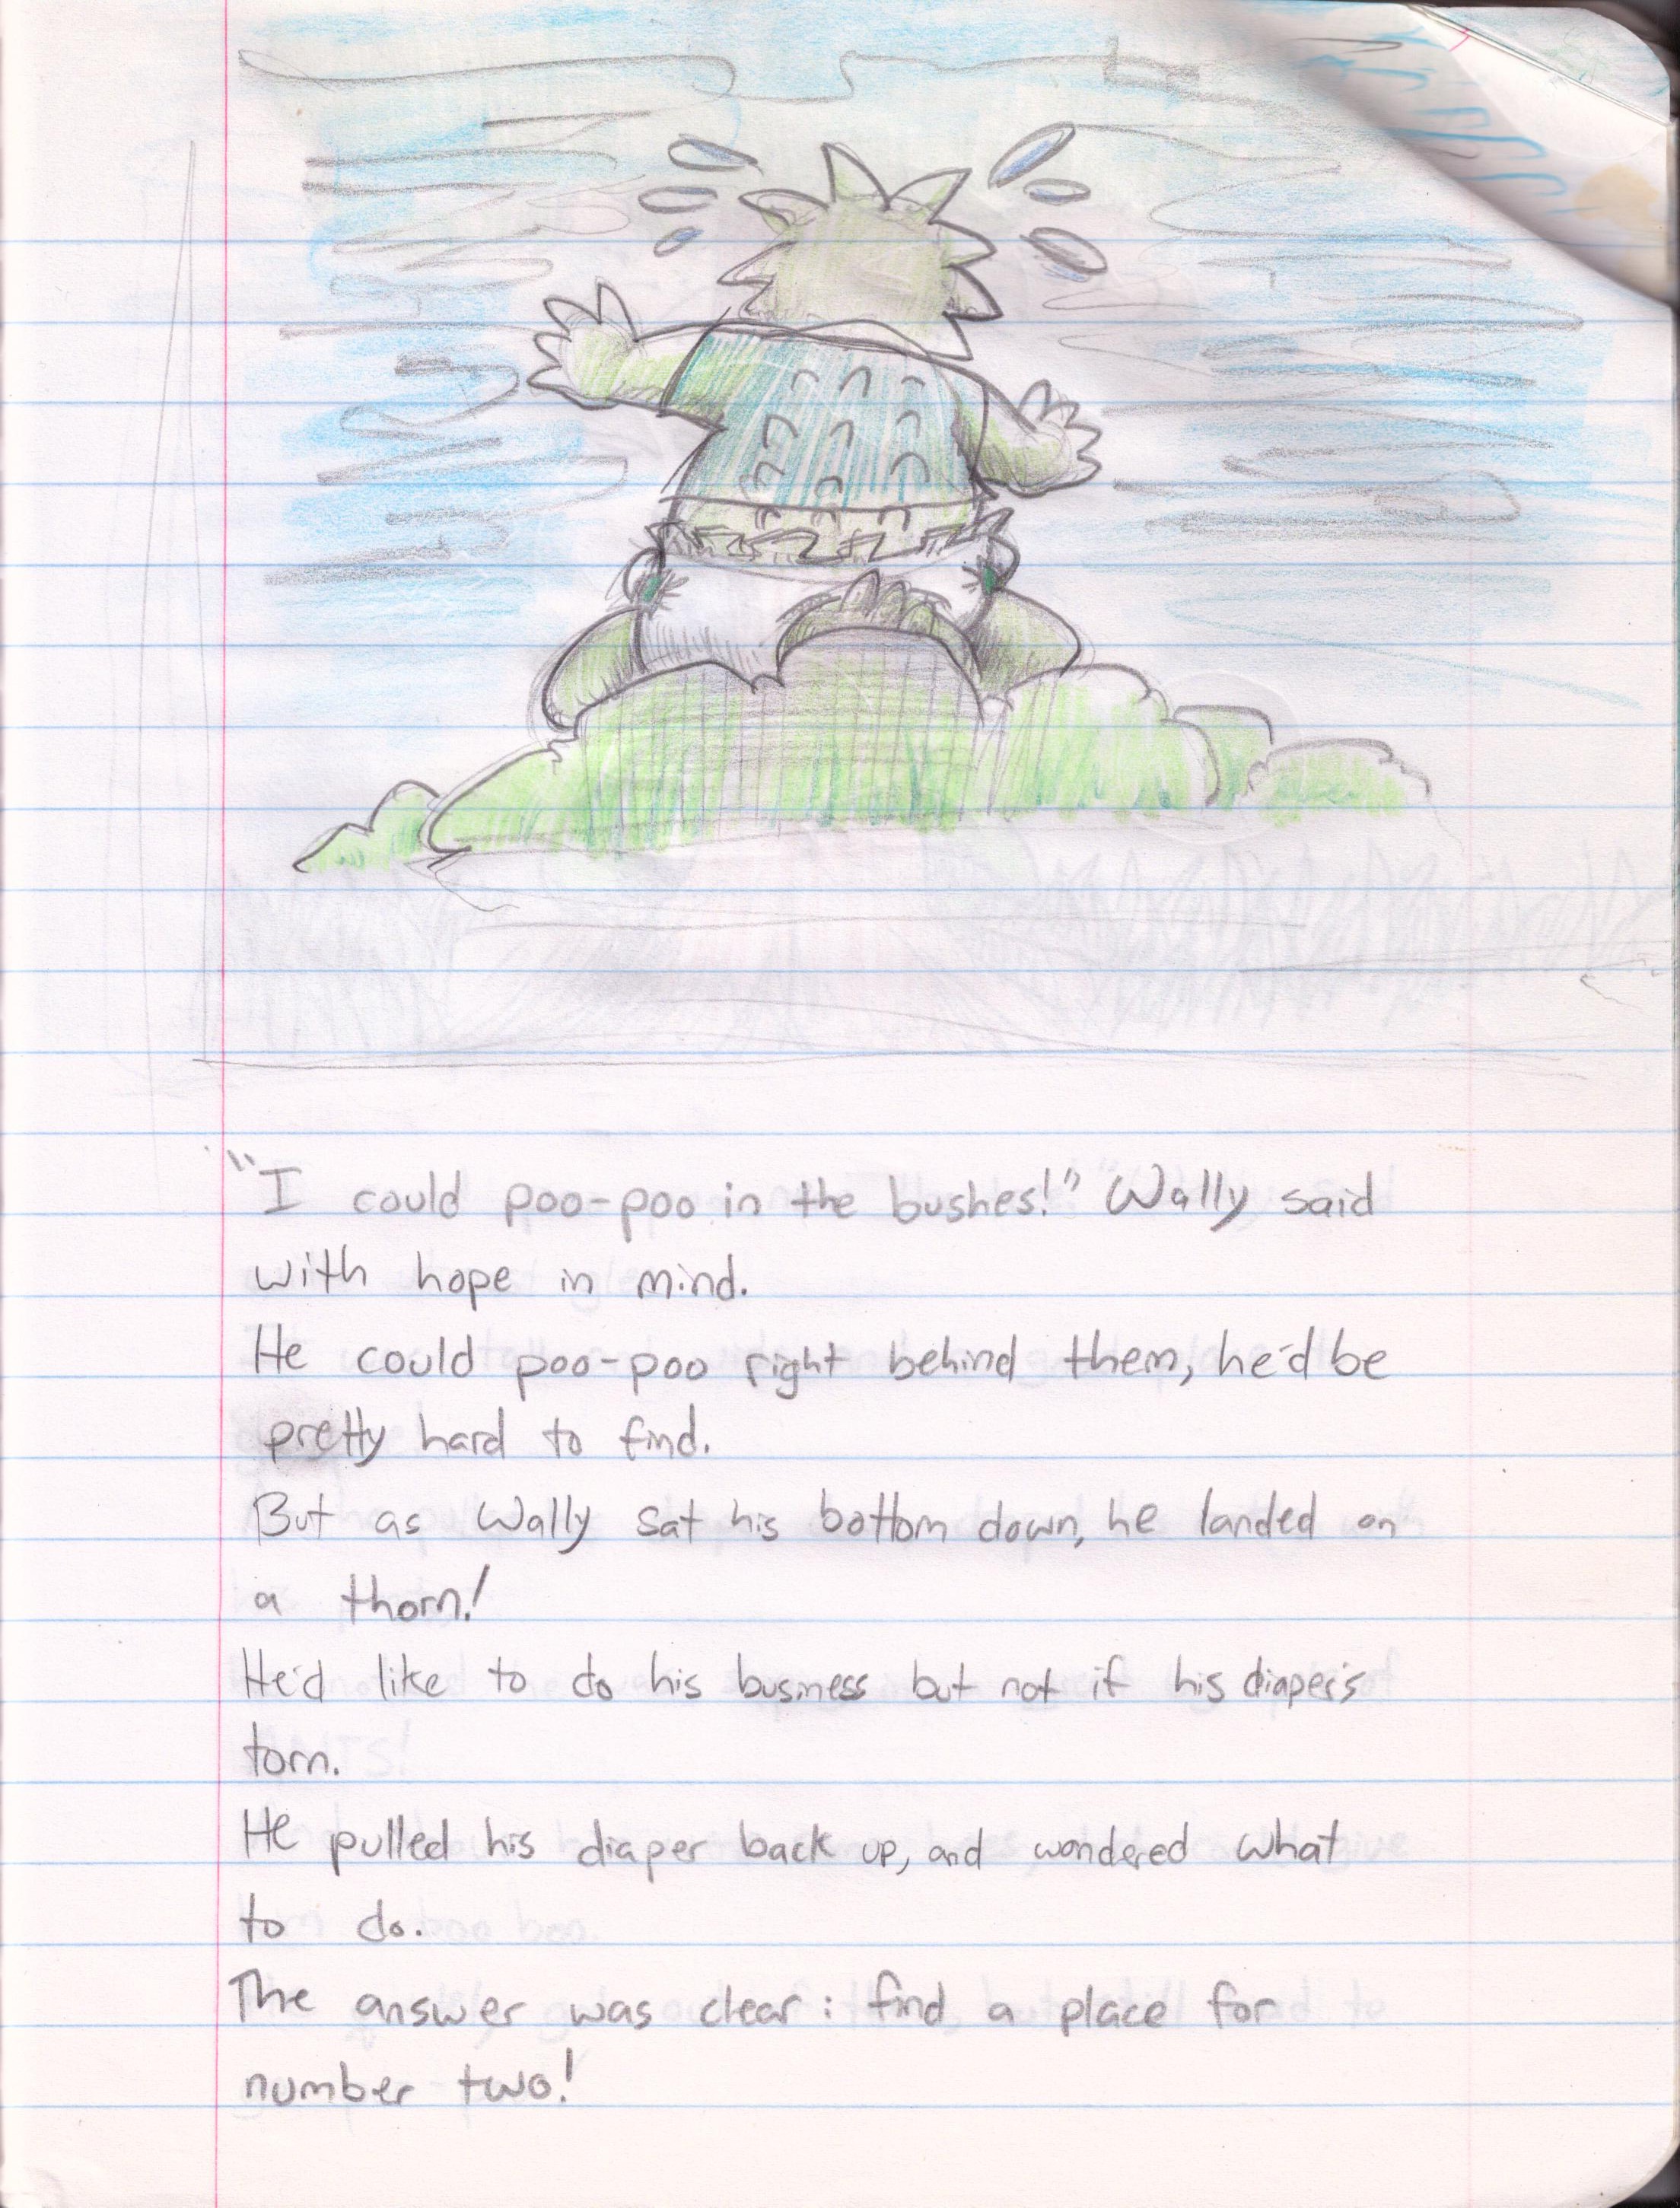 "I could poo-poo in the bushes!" Wally said
with hope in mind.
He could poo-poo right behind them, he'd be
pretty hard to find.
But as Wally sat his bottom down, he landed on
a thorn!
He'd like to do his business but not if his diaper's
torn.
He pulled his diaper back up, and wondered what
to do.
The answer was clear: find a place for
number two!